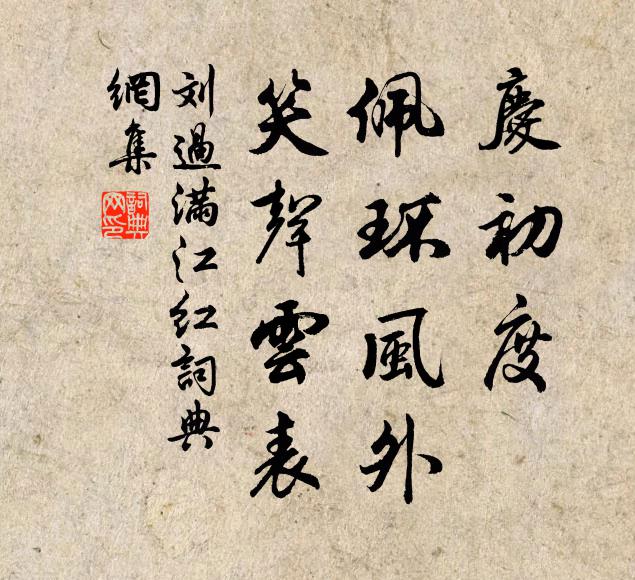 慶初度
佩環風外
笑聲雲表
刘過滿江红詞典
網集
詞典
网印